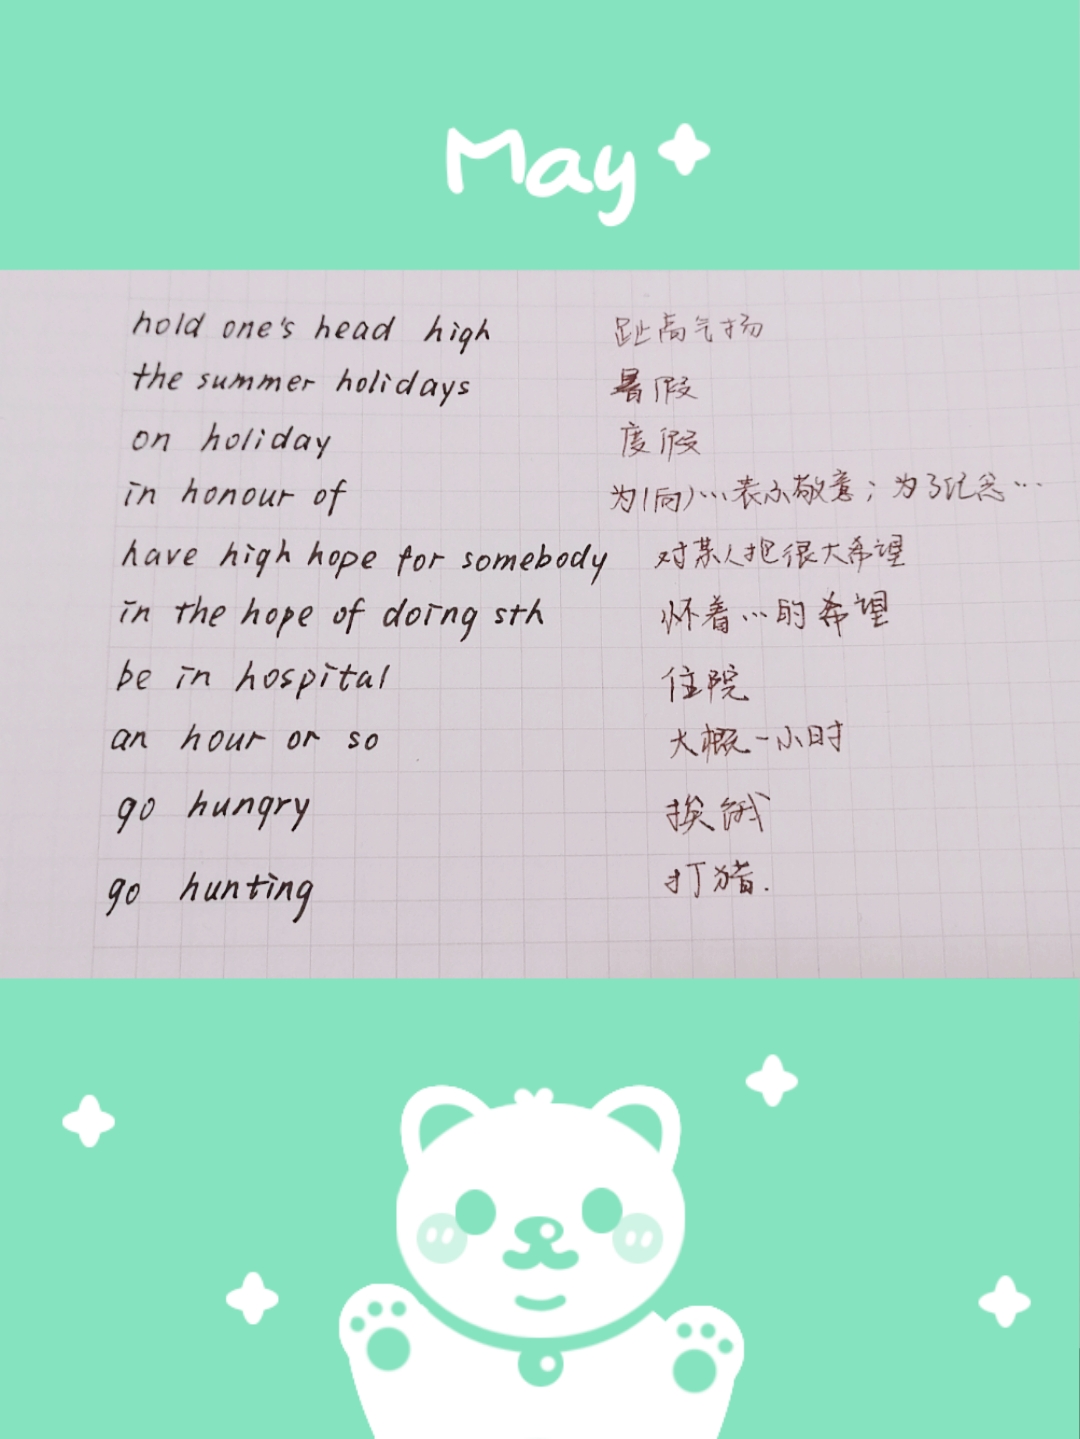 May
hold one's head high 趾高气扬
the summer holidays 暑假
on holiday 度假
in honour of 为(向)…表示敬意；为了纪念…
have high hope for somebody 对某人抱很大希望
in the hope of doing sth 怀着…的希望
be in hospital 住院
an hour or so 大概一小时
go hungry 挨饿
go hunting 打猪.